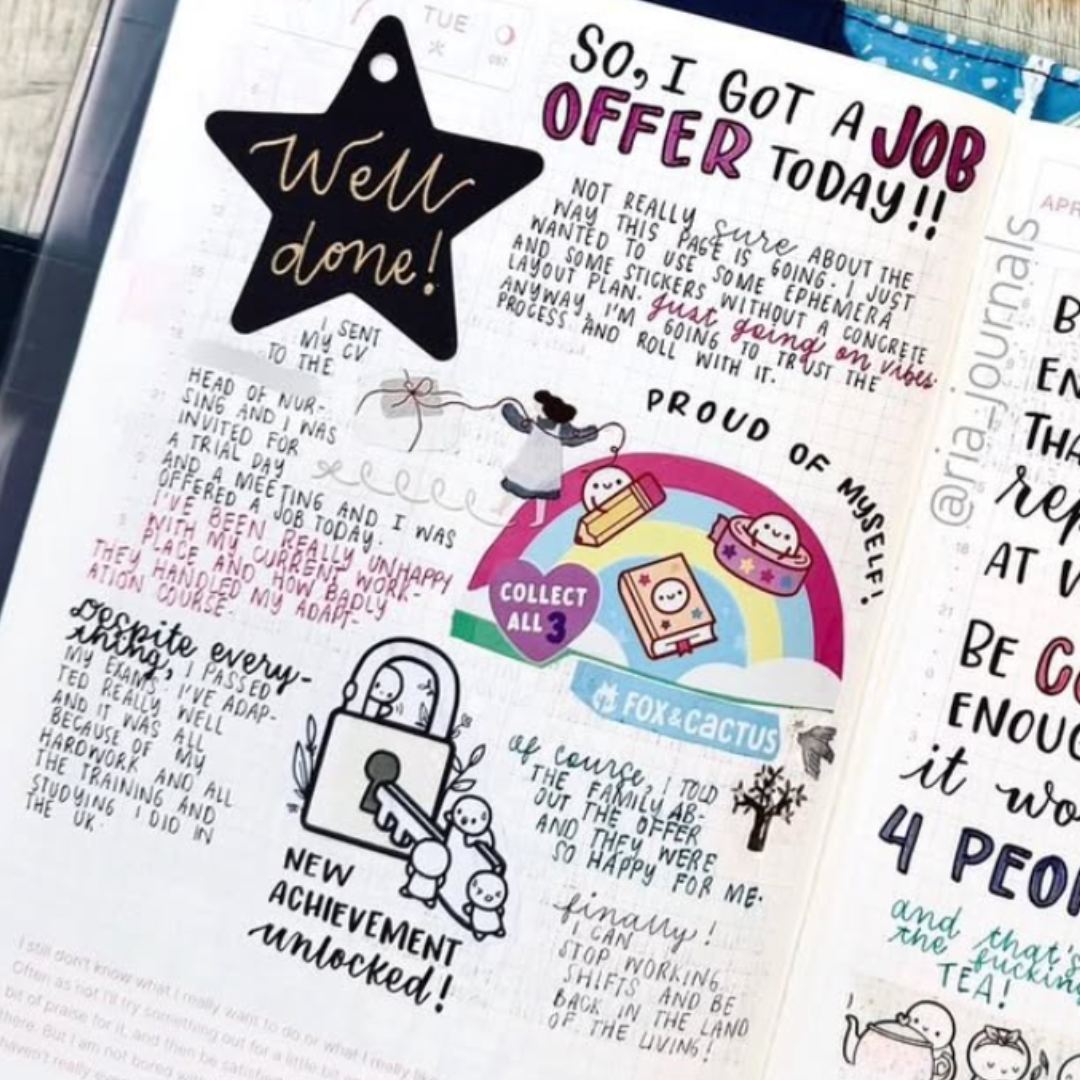 TUE
火
097
Well
done!
SO, I GOT A JOB
OFFER TODAY!!
NOT REALLY sure ABOUT THE
WAY THIS PAGE IS GOING. I JUST
WANTED TO USE SOME EPHEMERA
AND SOME STICKERS WITHOUT A CONCRETE
LAYOUT PLAN. just going on vibes.
ANYWAY, I'M GOING TO TRUST THE
PROCESS AND ROLL WITH IT.
I SENT
MY CV
TO THE
HEAD OF NUR-
SING AND I WAS
INVITED FOR
A TRIAL DAY
AND A MEETING AND I WAS
OFFERED A JOB TODAY.
I'VE BEEN REALLY UNHAPPY
WITH MY CURRENT WORK-
PLACE AND HOW BADLY
THEY HANDLED MY ADAPT-
ATION COURSE.
Despite every-
thing, I PASSED
MY EXAMS. I'VE ADAP-
TED REALLY WELL
AND IT WAS ALL
BECAUSE OF MY
HARDWORK AND ALL
THE TRAINING AND
STUDYING I DID IN
THE UK.
PROUD OF MYSELF!
COLLECT
ALL 3
FOX & CACTUS
NEW
ACHIEVEMENT
unlocked!
of course, I TOLD
THE FAMILY AB-
OUT THE OFFER
AND THEY WERE
SO HAPPY FOR ME.
finally!
I CAN
STOP WORKING
SHIFTS AND BE
BACK IN THE LAND
OF THE LIVING!
I still don't know what I really want to do or what I really like
Often as not I'll try something out for a little bit
bit of praise for it, and then be satisfied
there. But I am not bored with
haven't really
@aria_journals
APR
B
EN
THA
rep
AT
BE
ENOUG
it wo
4 PEO
and that's
the fucking
TEA!